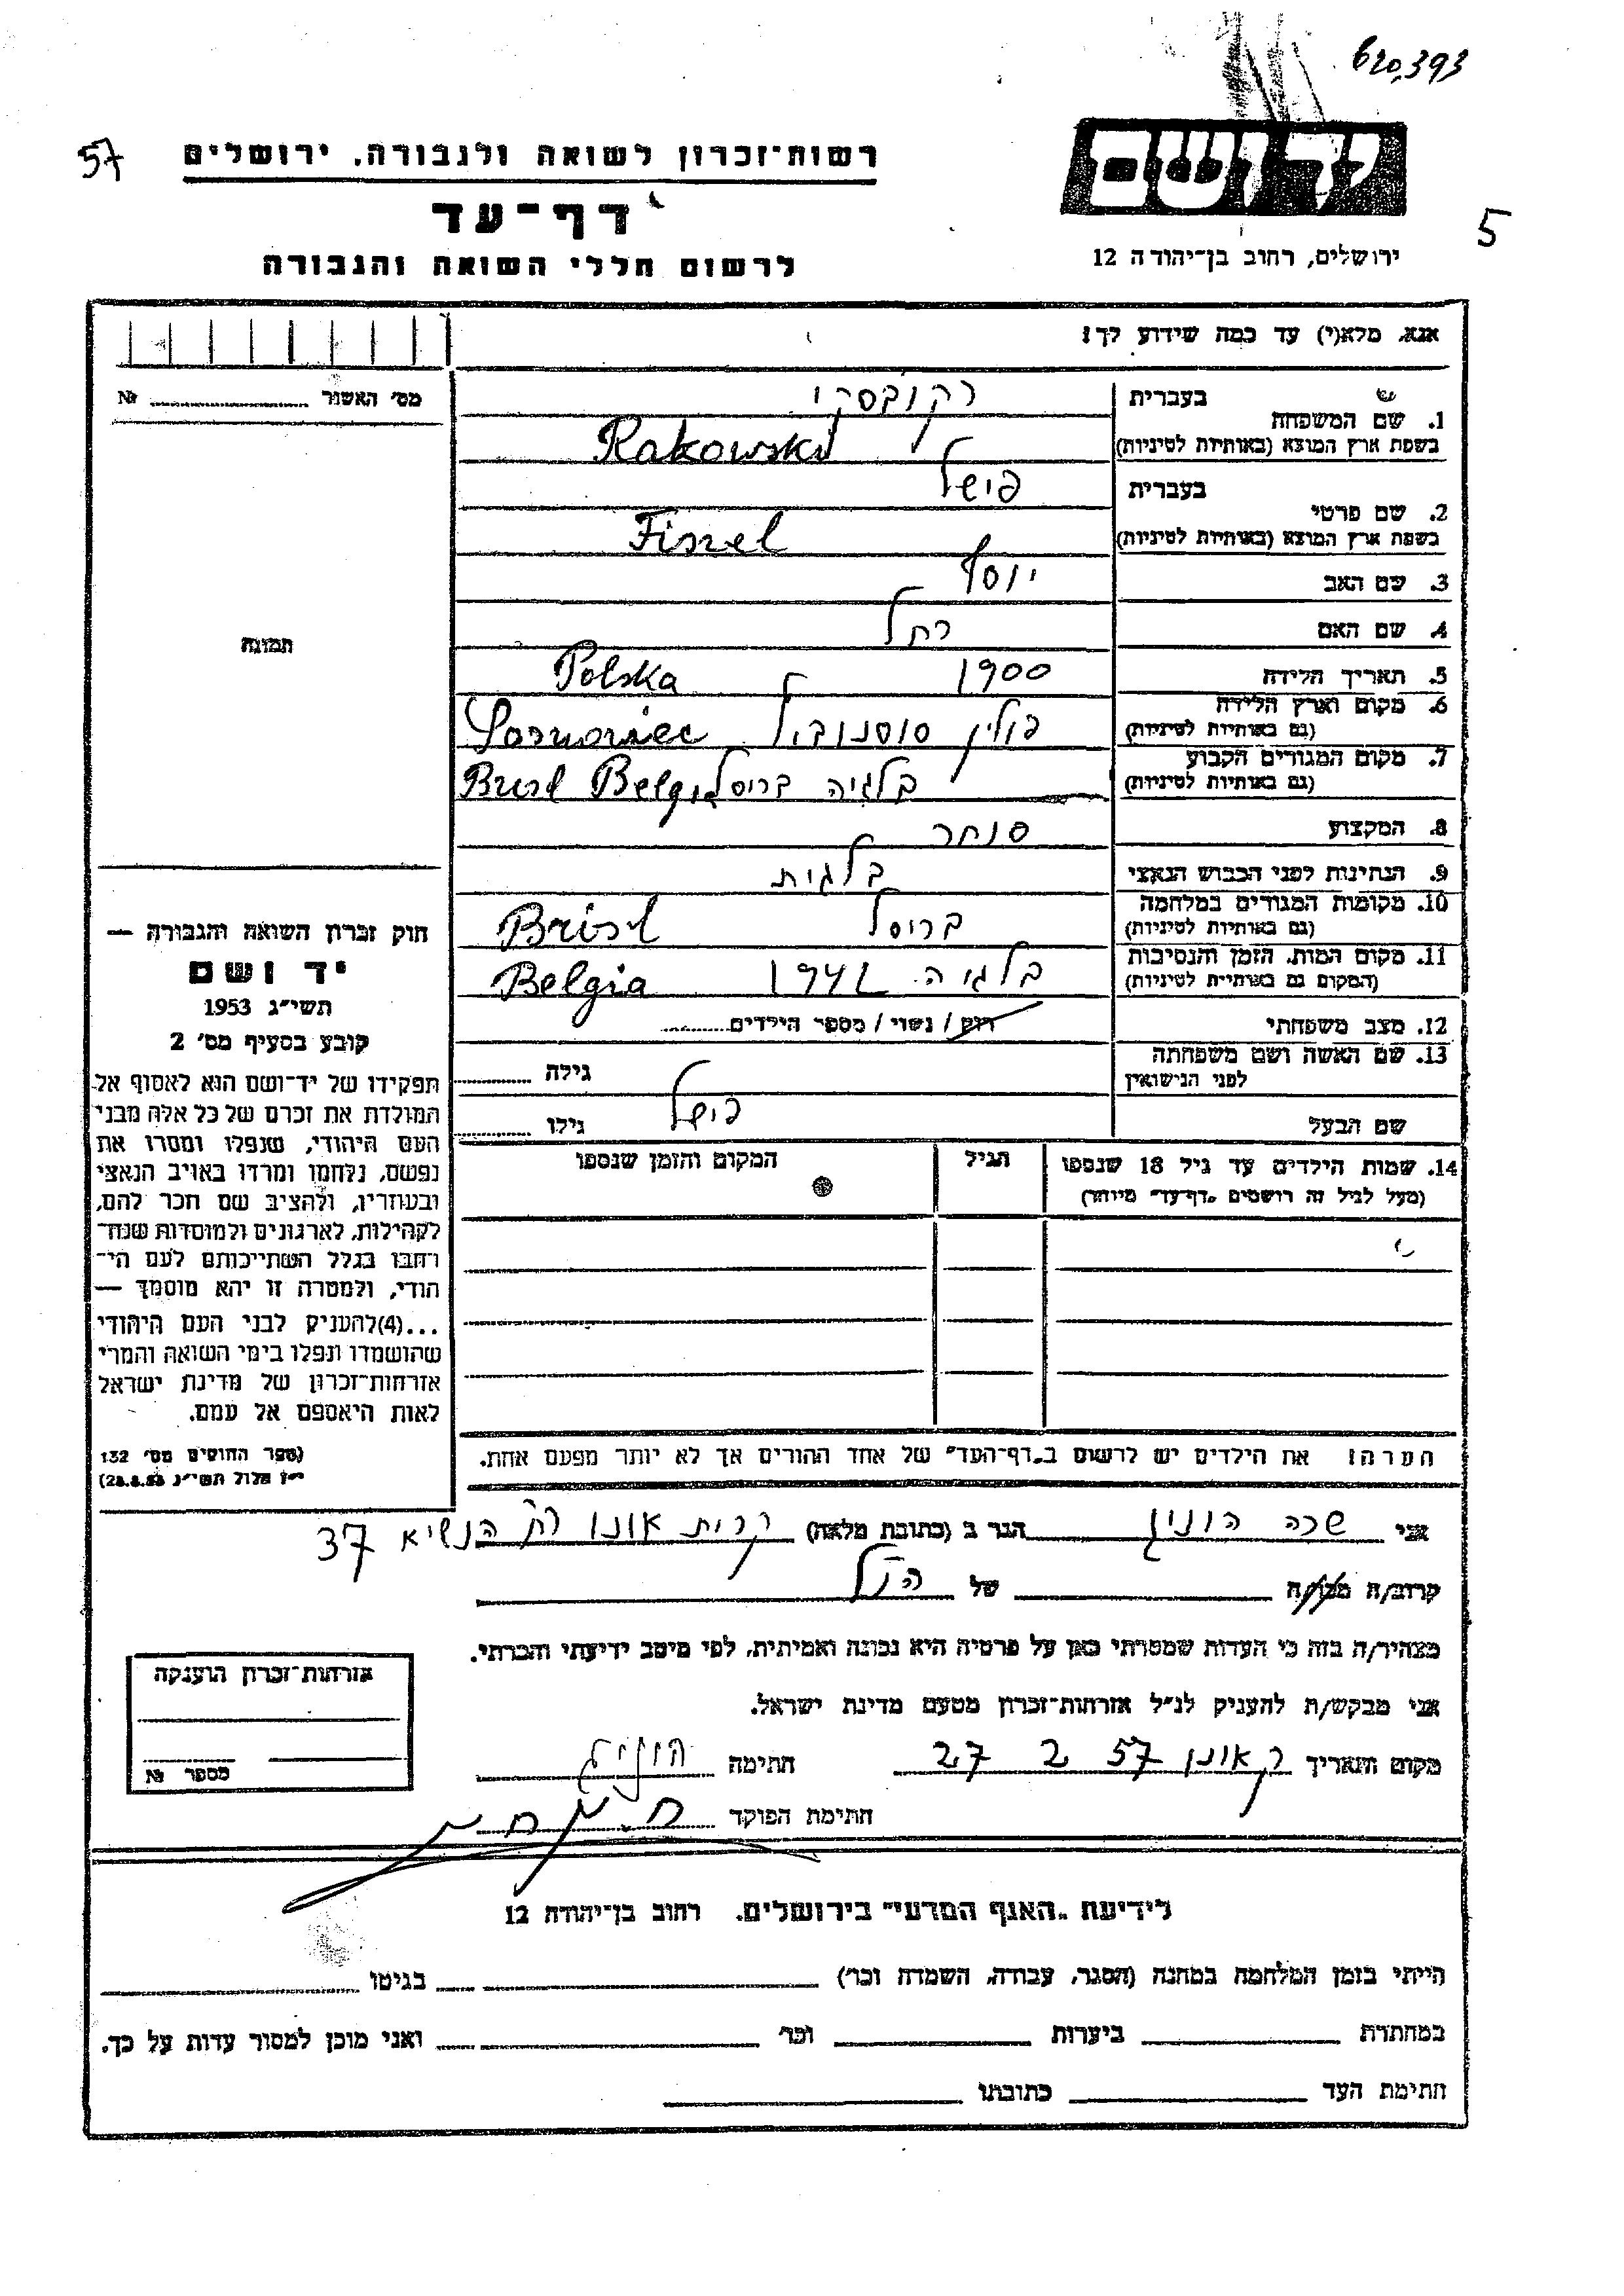 620,393
57
רשות-זכרון לשואה ולגבורה, ירושלים
דף-עד
לרשום חללי השואה והגבורה
יד ושם
ירושלים, רחוב בן-יהודה 12
5
אנא, מלא(י) עד כמה שידוע לך!
מס' האשור № 
1. שם המשפחה
בעברית רקובסקי
בשפת ארץ המוצא (באותיות לטיניות) Rakowski
2. שם פרטי
בעברית פישל
בשפת ארץ המוצא (באותיות לטיניות) Fiszel
3. שם האב יוסף
4. שם האם רחל
5. תאריך הלידה 1900 Polska
6. מקום וארץ הלידה
(גם באותיות לטיניות) פולין סוסנוביץ Sosnowiec
7. מקום המגורים הקבוע
(גם באותיות לטיניות) בלגיה בריסל Belgia Brusl
8. המקצוע סוחר
9. הנתינות לפני הכבוש הנאצי בלגית
10. מקומות המגורים במלחמה
(גם באותיות לטיניות) בריסל Brisl
11. מקום המות, הזמן והנסיבות
(המקום גם באותיות לטיניות) בלגיה Belgia
12. מצב משפחתי רוק / נשוי / מספר הילדים
13. שם האשה ושם משפחתה
לפני הנישואין גילה
שם הבעל פישל גילו
14. שמות הילדים עד גיל 18 שנספו הגיל המקום והזמן שנספו
(מעל לגיל זה רושמים "דף-עד" מיוחד)
הערה: את הילדים יש לרשום ב"דף-העד" של אחד ההורים אך לא יותר מפעם אחת.
תמונה
חוק זכרון השואה והגבורה —
יד ושם
תשי"ג 1953
קובע בסעיף מס' 2
תפקידו של יד-ושם הוא לאסוף אל
המולדת את זכרם של כל אלה מבני
העם היהודי, שנפלו ומסרו את
נפשם, נלחמו ומרדו באויב הנאצי
ובעוזריו, ולהציב שם וזכר להם,
לקהילות, לארגונים ולמוסדות שנח-
רבו בגלל השתייכותם לעם הי-
הודי, ולמטרה זו יהא מוסמך —
...(4)להעניק לבני העם היהודי
שהושמדו ונפלו בימי השואה והמרי
אזרחות-זכרון של מדינת ישראל
לאות היאספם אל עמם.
(ספר החוקים מס' 132
י"ז אלול תשי"ג 28.8.53)
אני שרה הגר ב (כתובת מלאה) קרית אונו רח הנשיא 37
קרוב/ה מכר/ה של הנ"ל
מצהיר/ה בזה כי העדות שמסרתי כאן על פרטיה היא נכונה ואמיתית, לפי מיטב ידיעתי והכרתי.
אני מבקש/ת להעניק לנ"ל אזרחות-זכרון מטעם מדינת ישראל.
מקום ותאריך ק אונו 27 2 57 חתימה
חתימת הפוקד
אזרחות-זכרון הוענקה
מספר №
לידיעת "האגף המדעי" בירושלים, רחוב בן-יהודה 12
הייתי בזמן המלחמה במחנה (הסגר, עבודה, השמדה וכו') בגיטו
במחתרת ביערות וכו' ואני מוכן למסור עדות על כך.
חתימת העד כתובתו